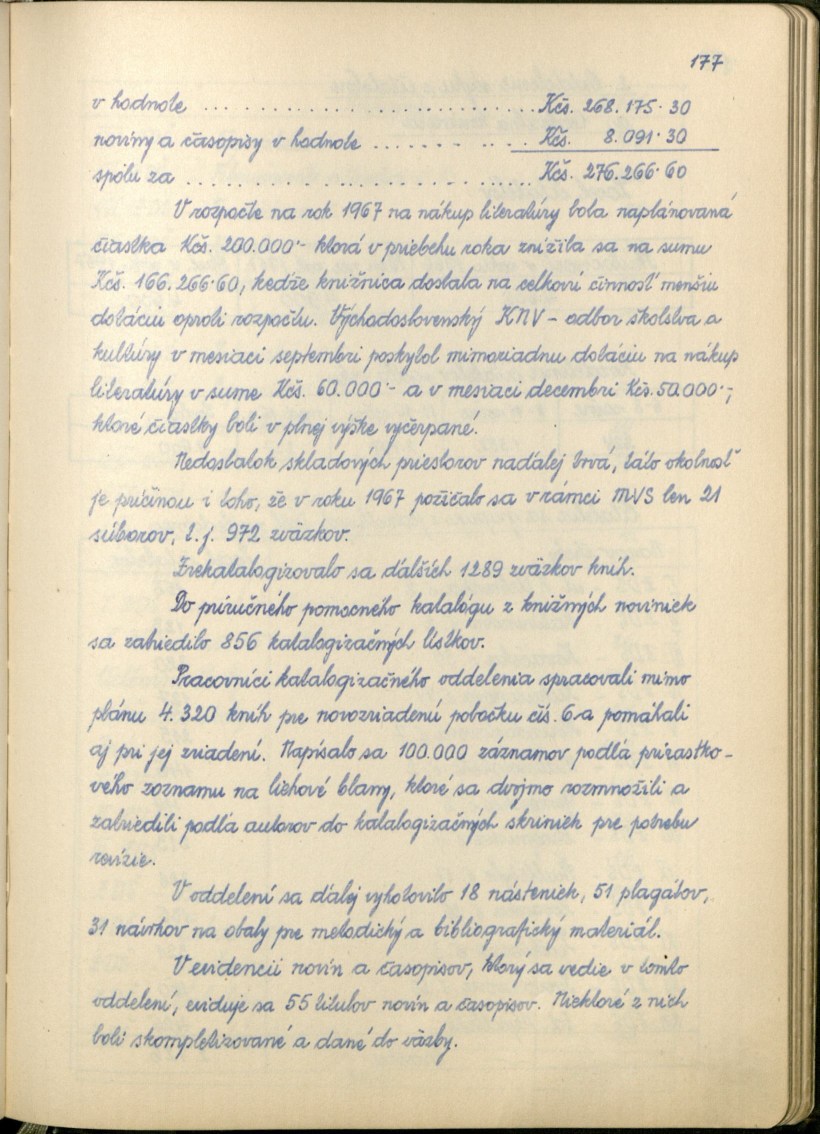 177
v hodnote ................................ Kčs. 268.175·30
noviny a časopisy v hodnote ............ Kčs. 8.091·30
spolu za ................................ Kčs. 276.266·60
V rozpočte na rok 1967 na nákup literatúry bola naplánovaná
čiastka Kčs. 200.000·- ktorá v priebehu roka znížila sa na sumu
Kčs. 166.266·60, kedže knižnica dostala na celkovú činnosť menšiu
dotáciu oproti rozpočtu. Východoslovenský KNV - odbor školstva a
kultúry v mesiaci septembri poskytol mimoriadnu dotáciu na nákup
literatúry v sume Kčs. 60.000·- a v mesiaci decembri Kčs. 50.000·-,
ktoré čiastky boli v plnej výške vyčerpané.
Nedostatok skladových priestorov naďalej trvá, táto okolnosť
je príčinou i toho, že v roku 1967 požičalo sa v rámci MVS len 21
súborov, t. j. 972 zväzkov.
Zrekatalogizovalo sa ďalších 1289 zväzkov kníh.
Do príručného pomocného katalógu z knižných noviniek
sa zatriedilo 856 katalogizačných lístkov.
Pracovníci katalogizačného oddelenia spracovali mimo
plánu 4.320 kníh pre novozriadenú pobočku čís. 6 a pomáhali
aj pri jej zriadení. Napísalo sa 100.000 záznamov podľa prírastko-
vého zoznamu na liehové blany, ktoré sa dvojmo rozmnožili a
zatriedili podľa autorov do katalogizačných skriniek pre potrebu
revízie.
V oddelení sa ďalej vyhotovilo 18 násteniek, 51 plagátov,
31 návrhov na obaly pre metodický a bibliografický materiál.
V evidencii novín a časopisov, ktorý sa vedie v tomto
oddelení, eviduje sa 55 titulov novín a časopisov. Niektoré z nich
boli skompletizované a dané do väzby.